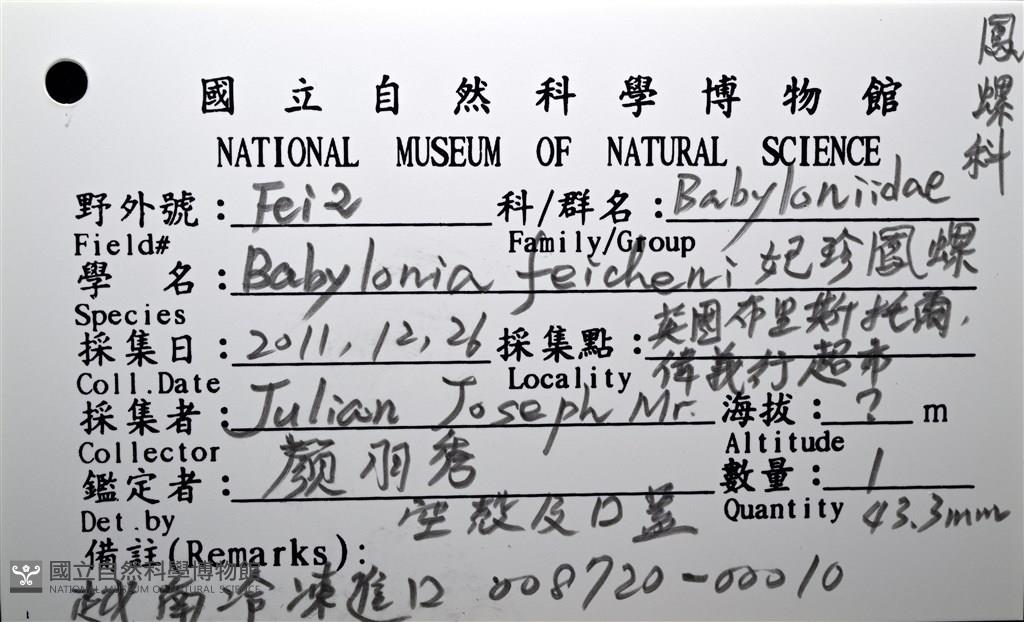 鳳螺科
國立自然科學博物館
NATIONAL MUSEUM OF NATURAL SCIENCE
野外號: Fei2 科/群名: Babyloniidae
Field# Family/Group
學 名: Babylonia feicheni 妃珍鳳螺
Species
採集日: 2011, 12, 26 採集點: 英國布里斯托爾,
偉義行超市
Coll.Date Locality
採集者: Julian Joseph Mr. 海拔: ? m
Collector Altitude
鑑定者: 顏羽秀 數量: 1
Det.by Quantity 43.3mm
空殼及口蓋
備註(Remarks):
越南冷凍進口 008720-00010
國立自然科學博物館
NATIONAL MUSEUM OF NATURAL SCIENCE